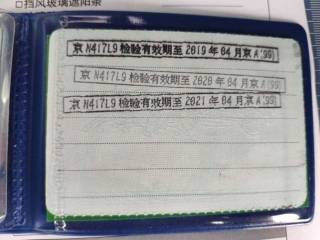 □挡风玻璃遮阳条
京N417L9检验有效期至2019年04月京A(99)
京N417L9检验有效期至2020年04月京A(99)
京N417L9检验有效期至2021年04月京A(99)